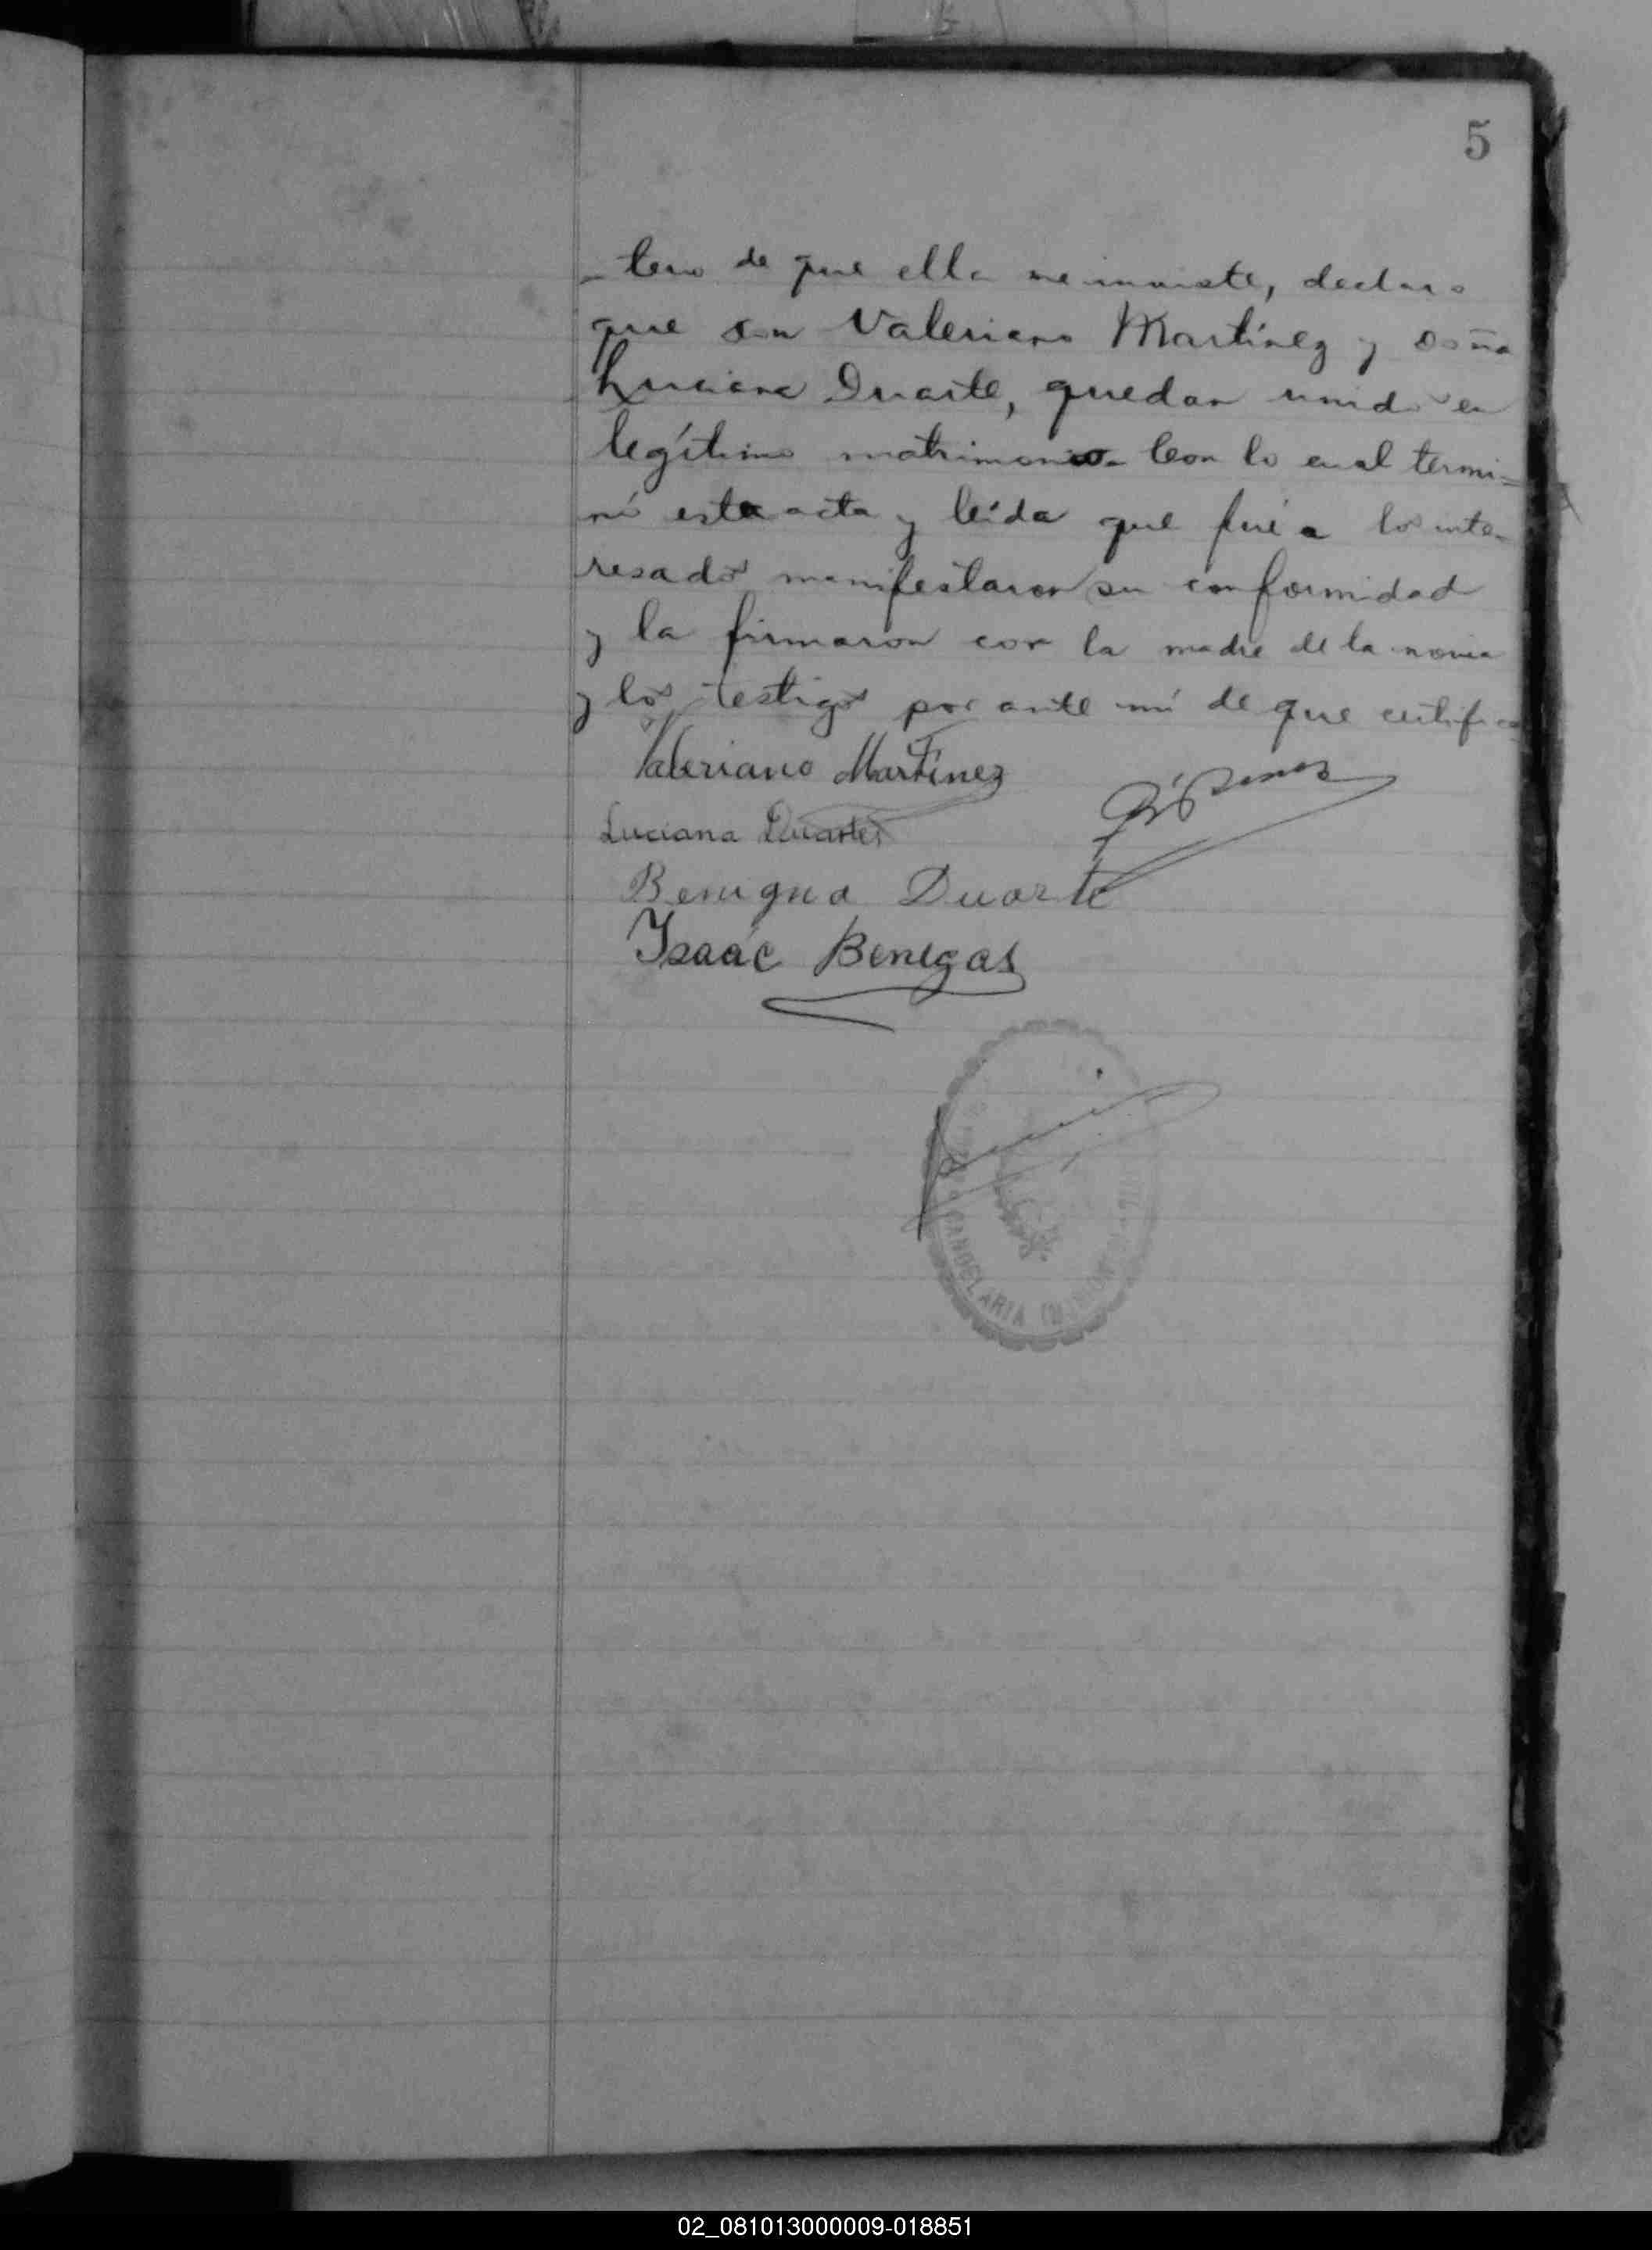 5
de que ella me inviste, declaro
que don Valeriano Martínez y doña
Luciana Duarte, quedan unidos en
legítimo matrimonio. Con lo cual termi=
nó esta acta y leída que fué a los inte-
resados manifestaron su conformidad
y la firmaron con la madre de la novia
y los testigos por ante mí de que certifico
Valeriano Martínez
Luciana Duarte
Benigna Duarte
Isaác Benegas
CANDELARIA
02_081013000009-018851